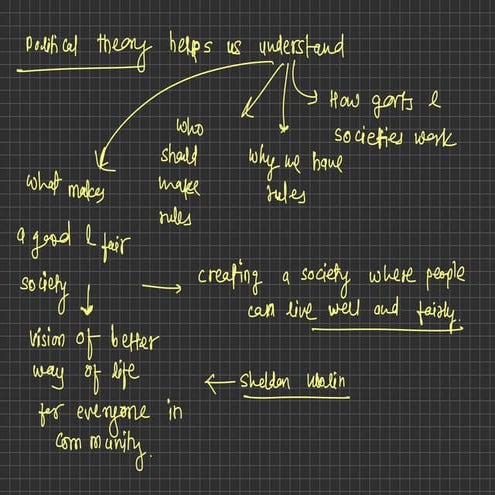 Political theory helps us understand
How govts &
societies work
who
should
make
rules
why we have
rules
what makes
a good & fair
society
creating a society where people
can live well and fairly.
vision of better
way of life
for everyone in
community.
Sheldon Wolin